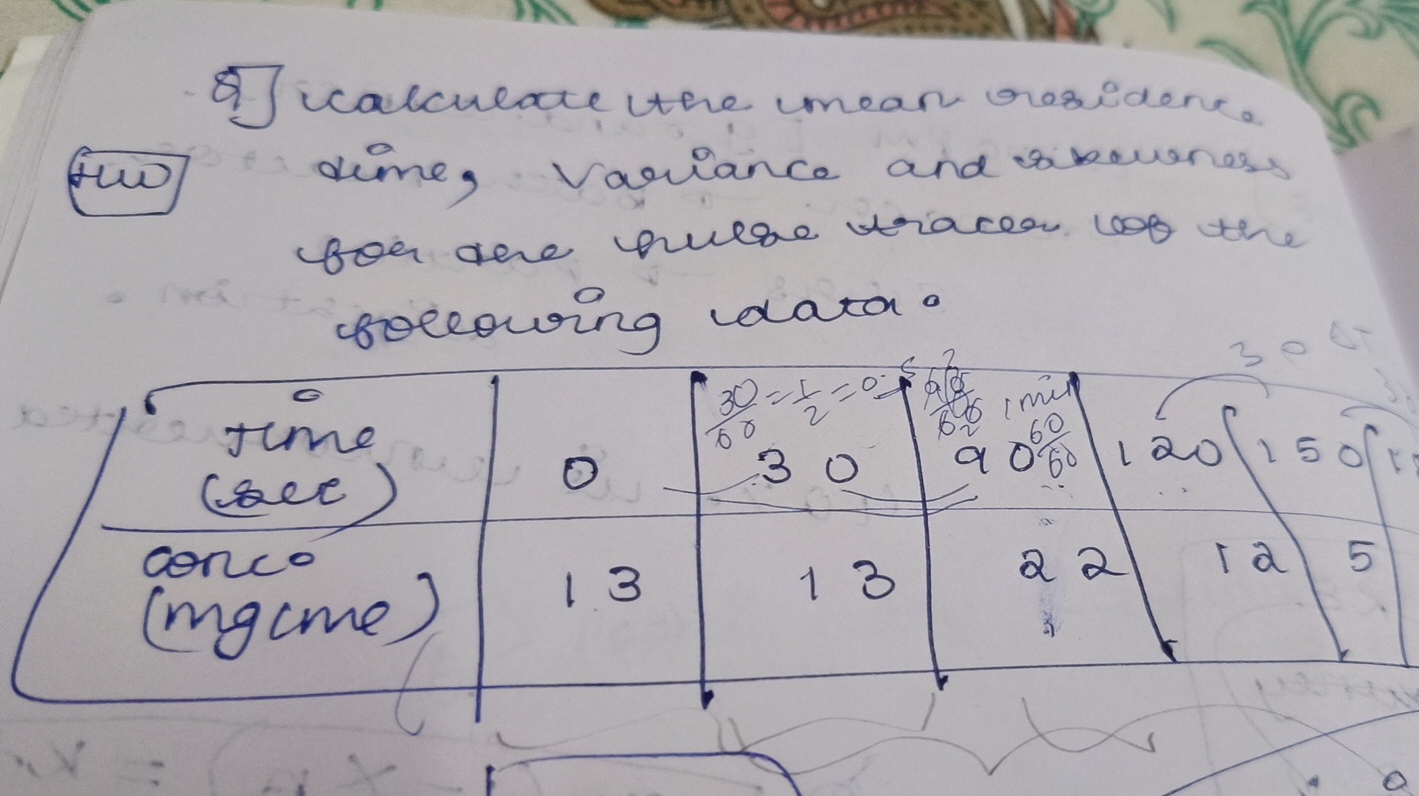 Q] calculate the mean residence
HW time, variance and skewness
for the pulse tracer of the
following data.
30 ΔT
30/60 = 1/2 = 0.5 1 min
time (sec) 0 30 90 60/60 120 150
conc. (mg/ml) 13 13 22 12 5